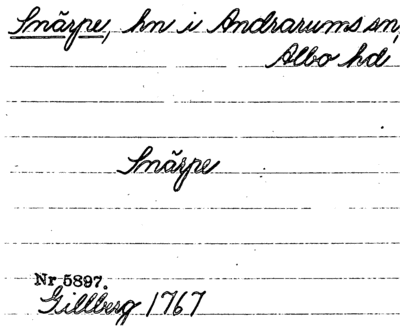 Snärpe, hn i Andrarums sn,
Albo hd
Snärpe
Nr 5897.
Gillberg 1767